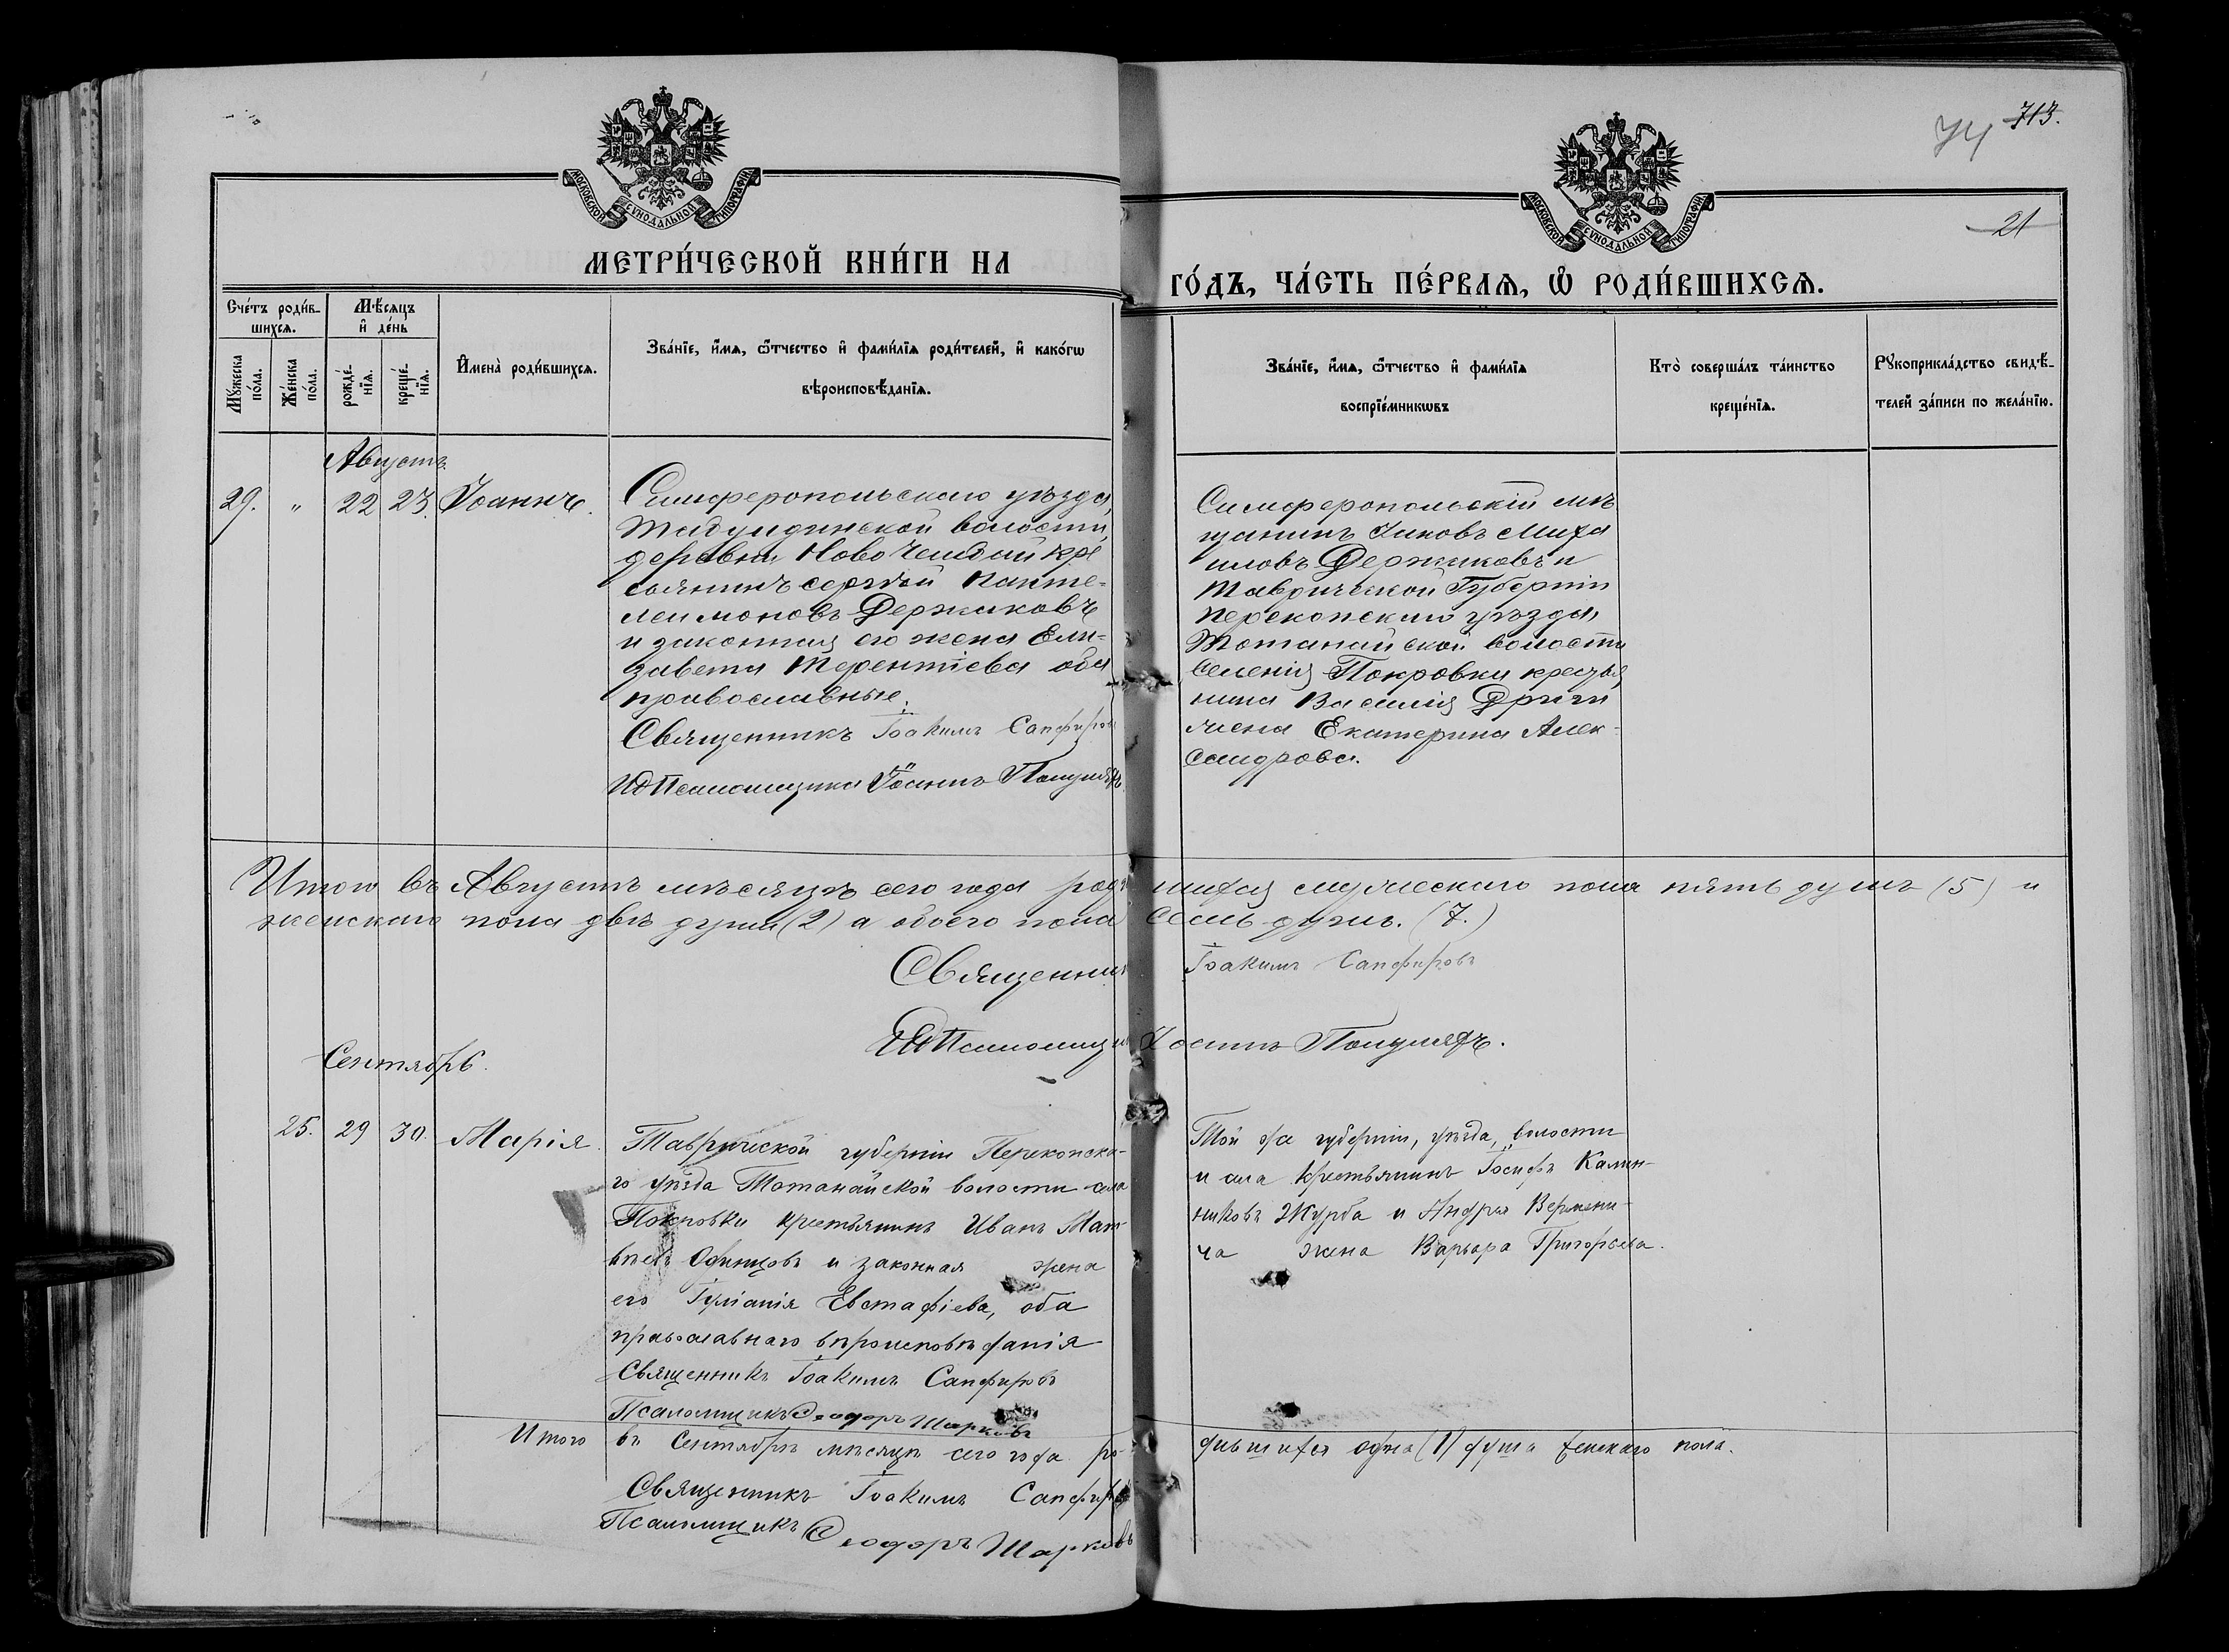 713.
74
21
МОСКОВСКОЙ СѴНОДАЛЬНОЙ ТИПОГРАФІИ
МОСКОВСКОЙ СѴНОДАЛЬНОЙ ТИПОГРАФІИ
МЕТРИ́ЧЕСКОЙ КНИ́ГИ НА
ГО́ДЪ, ЧА́СТЬ ПЕ́РВАЯ, Ѡ РОДИ́ВШИХСЯ.
Сче́тъ роди́в-
шихся.
Мѣ́сяцъ
и де́нь
Мꙋ́жеска
по́ла.
Же́нска
по́ла.
рожде́-
нїя.
креще́-
нїя.
И҆мена̀ роди́вшихся.
Зва́нїе, и҆́мя, ѻ҆́тчество и҆ фами́лїя роди́телей, и҆ како́гѡ
вѣроисповѣ́данїя.
Зва́нїе, и҆́мя, ѻ҆́тчество и҆ фами́лїя
воспрїе́мникѡвъ
Кто̀ соверша́лъ та́инство
креще́нїя.
Рꙋкоприкла́дство свидѣ́-
телей за́писи по жела́нїю.
Августъ
29. " 22 23. Іоаннъ.
Симферопольскаго уѣзда,
Табулдинской волости,
деревни Ново Чембай кре
стьянинъ Сергѣй Панте-
леимоновъ Держаковъ
и законная его жена Ели-
завета Терентіева оба
православные.
Священникъ Іоакимъ Сапфировъ
ИД Псаломщика Іоаннъ
Симферопольскій мѣ
щанинъ Іаковъ Михаи
иловъ Держаковъ и
Таврической Губерніи
Перекопскаго уѣзда,
Тотанайской волости
Селенія Покровки крестья
нина Василія Дриги
жена Екатерина Алек-
сандрова.
Итого въ Августѣ мѣсяцѣ сего года роди шихся мужескаго пола пять душъ (5) и
женскаго пола двѣ души (2) а обоего пола семь душъ. (7.)
Священникъ Іоакимъ Сапфировъ
ИД Псаломщика Іоаннъ
Сентябрь.
25. 29 30. Марія.
Таврической губерніи Перекопска-
го уѣзда Тотанайской волости села
Покровки крестьянинъ Иванъ Мат-
вѣевъ Одинцовъ и законная жена
его Іуліанія Евстафіева, оба
православнаго вѣроисповѣданія
Священникъ Іоакимъ Сапфировъ
Псаломщикъ Ѳеодоръ Шарковъ
Той же губерніи, уѣзда, волости
и села крестьянинъ Іосифъ Калин-
никовъ Журба и Андрея Вермени-
ча жена Варвара Григорьева.
Итого въ Сентябрѣ мѣсяцѣ сего года ро- дившихся одна (1) душа женскаго пола.
Священникъ Іоакимъ Сапфировъ
Псаломщикъ Ѳеодоръ Шарковъ